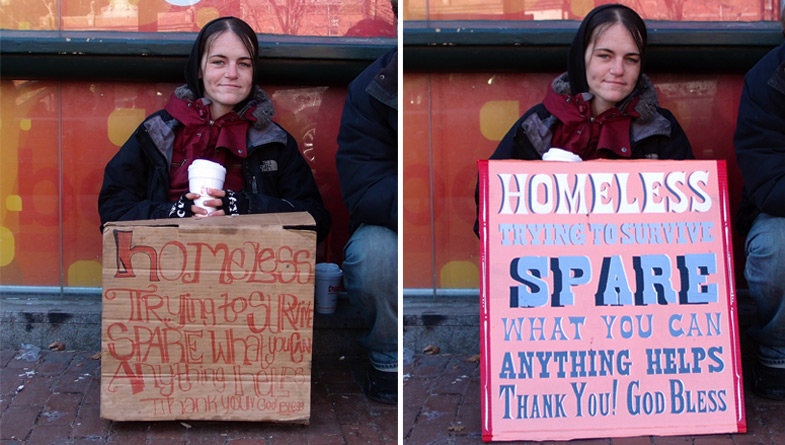 homeless
Trying to SURViVE
SPARE What you CAN
Anything Helps
Thank you! God BleSS
HOMELESS
TRYING TO SURVIVE
SPARE
WHAT YOU CAN
ANYTHING HELPS
THANK YOU! GOD BLESS